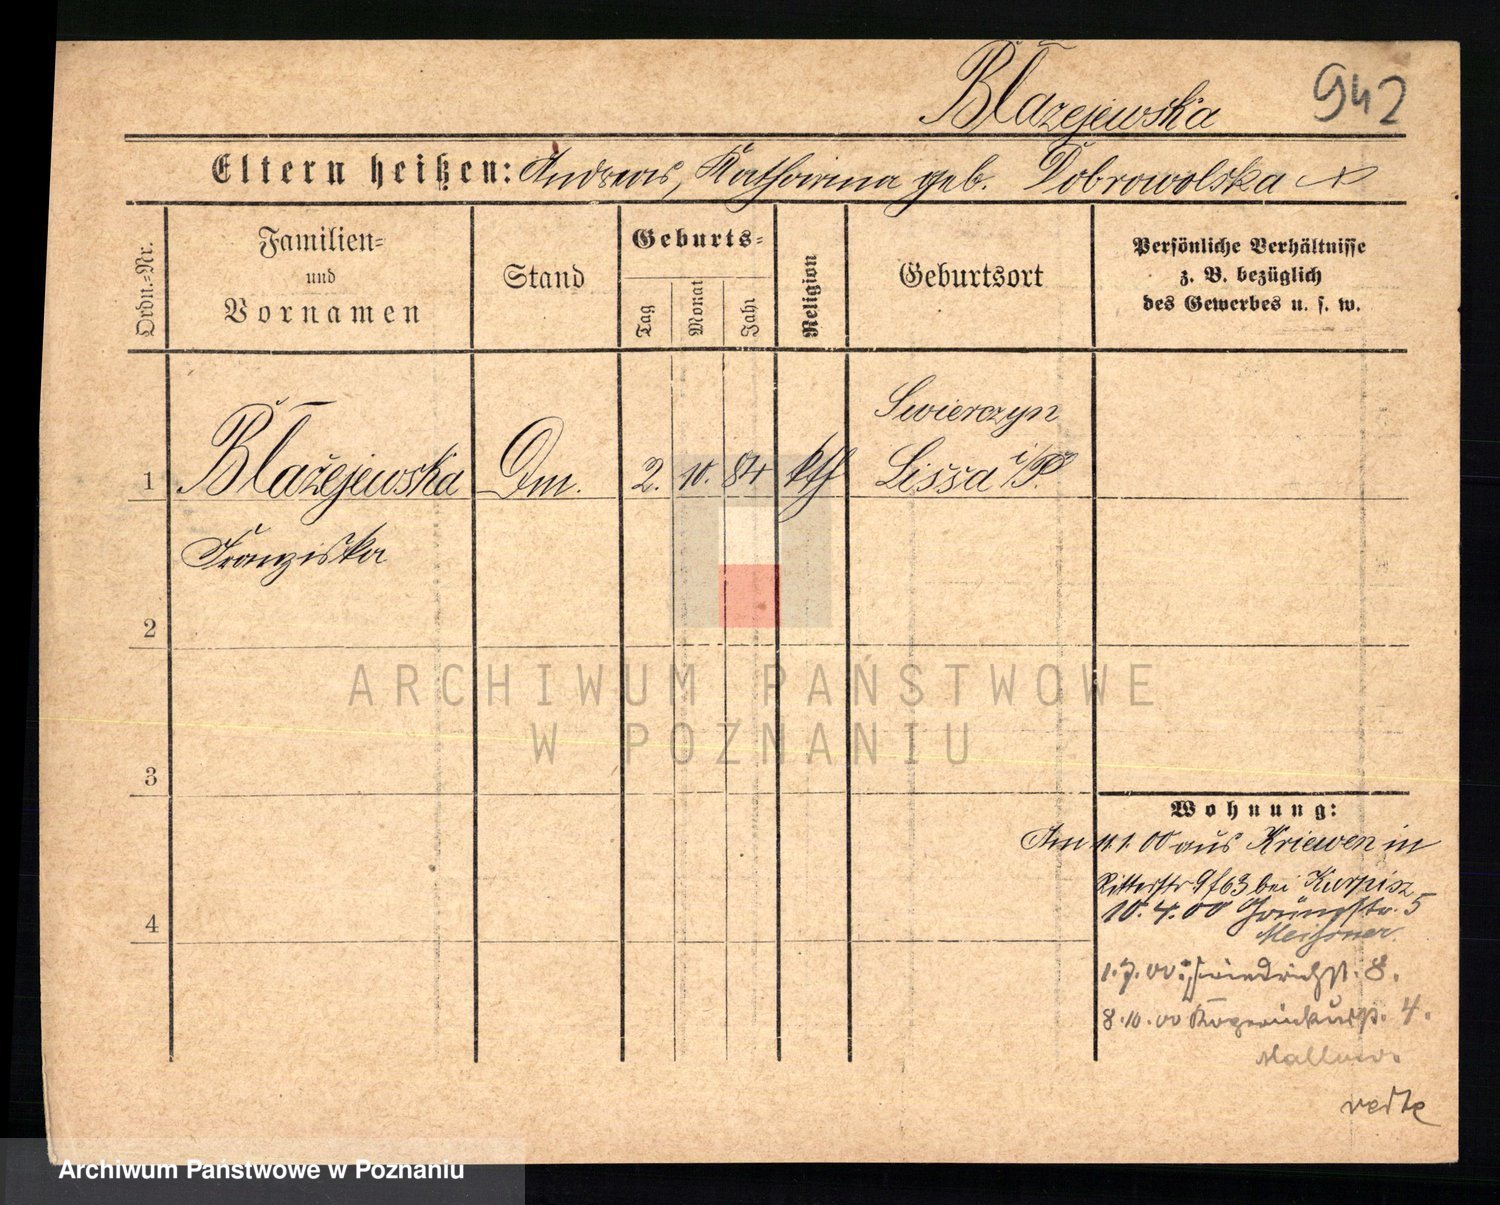 Błażejewska 942
Eltern heißen: Andreas, Katharina geb. Dobrowolska
Ordn.-Nr.
Familien-
und
Vornamen
Stand
Geburts-
Tag
Monat
Jahr
Religion
Geburtsort
Persönliche Verhältnisse
z. B. bezüglich
des Gewerbes u. s. w.
Swierczyn
1 Błażejewska Dm. 2. 10. 84 kth Lissa i/P.
Franziska
2
ARCHIWUM PAŃSTWOWE
W POZNANIU
3
Wohnung:
Am 11.1.00 aus Kriewen in
Ritterstr 9/63 bei Kurpisz
10.4.00 Grünestr. 5
4
Meißner.
1.7.00 Friedrichst. 8.
8.10.00 4.
Archiwum Państwowe w Poznaniu